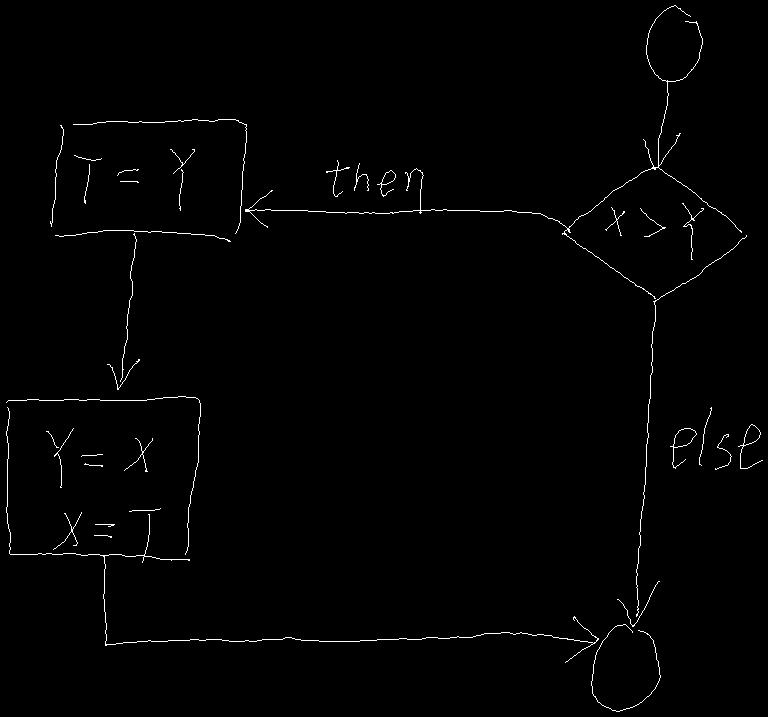 T = Y
then
X > Y
Y = X
X = T
else